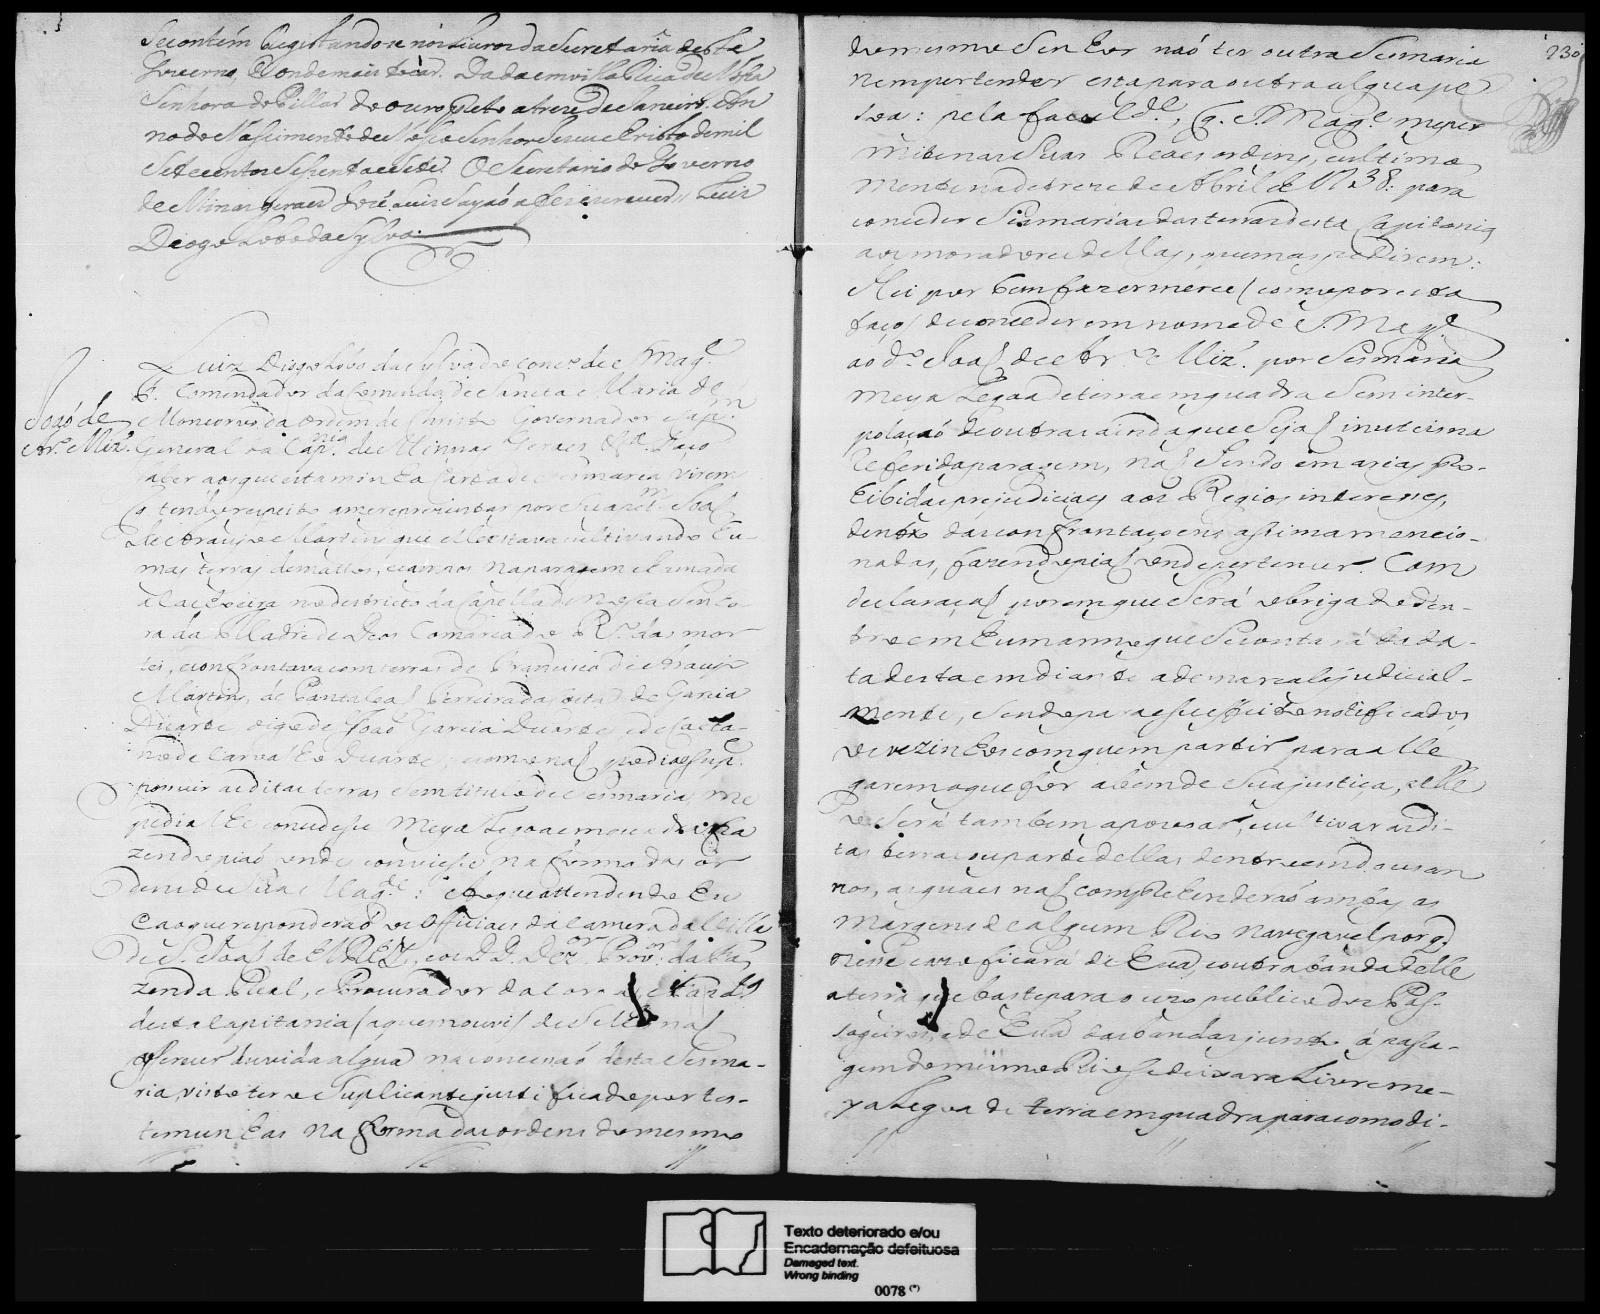 Se contém Registandose nos Livros da Secretaria deste
Governo, e onde mais tocar. Dada em villa Rica de Nossa
Senhora do Pillar do ouro preto a treze de Janeiro. An
no do Nascimento de Nosso Senhor Jesus Christo de mil
Setecentos e sesenta e sete. O Secretario do Governo
de Minas geraes José Luis Sayaó a fez escrever // Luiz
Diogo Lobo da Sylva.
Joaó de
Ar.º Miz.
Luiz Diogo Lobo da Sylva do Cons.º de S. Mag.e
F. Comendador da Comenda de Sancta Maria de
Moncorvo da ordem de Christo Governador e Cap.m
General da Cap.nia de Minnas Geraes &.ª Faço
saber aos que esta minha Carta de Sesmaria virem
q tendo respeito a me reprezentar por sua pet.m Joaõ
de Araujo Martins que elle estava cultivando hu-
mas terras de mattos, e campos na paragem chamada
a Caxoeira no districto da Capella de Nossa Senho-
ra da Madre de Deos Comarca do R.º das mor
tes, e confrontava com terras de Francisco de Araujo
Martins, de Pantaleaõ Ferreira da Costa, de Garcia
Duarte digo de Joaõ Garcia Duarte, e de Caeta-
no de Carvalho Duarte; e como naõ podia o Sup.e
possuir as ditas terras sem titulo de Sesmaria, me
pedia lhe concedesse meya Legoa em quadra fa
zendo piaó onde conviesse na forma das or
dens de Sua Mag.de: Ao que attendendo Eu
e ao que responderaó os Officiaes da Camera da Villa
de S. Joaõ de El REY, e os D.D. Dez.or Prov.or da Fa
zenda Real, e Procurador da Coroa e Faz.da
desta Capitania (a quem ouvi) de se lhe naõ
offerecer duvida algua na concessaó desta Sesma-
ria, visto ter o Suplicante justificado por tes-
temunhas na forma das ordens do mesmo
230
do mesmo Senhor naó ter outra Sesmaria
nem pertender esta para outra algua pe
soa: pela facul.de, q. S. Mag.e me per
mite nas suas Reaes ordens, e ultima
mente na de treze de Abril de 1738: para
conceder Sesmarias das terras desta Capitania
aos moradores dellas, que mas pedirem:
Hei por bem fazer merce (como por esta
faço) de conceder em nome de S. Mag.e
aó d.º Joaõ de Ar.º Miz. por Sesmaria
meya Legoa de terra em quadra sem inter-
polaçaó de outras ainda que Sejaõ inuteis na
referida paragem, naõ Sendo em arias pro-
hibidas e prejudiciaes aos Regios interesses,
dentro das confrontaçoens assima mencio-
nadas, fazendo piaõ onde pertencer. Com
declaraçaõ porem que Será obrigado den-
tro em hum anno que Se contará da da-
ta desta em diante a demarcala judicial-
mente, sendo para esse effeito notificados
os vezinhos com quem partir para alle
garem o que for a bem de Sua justiça, e elle
o Será tambem a povoar, e cultivar as di-
tas terras ou parte dellas dentro em dous an
nos, as quaes naõ comprehenderaó ambas as
margens de algum Rio navegavel por q.
nesse cazo ficará de hua, e outra banda delle
a terra que baste para o uzo publico dos Pas-
sageiros, e de hua das bandas junto á passa-
gem do mesmo Rio se deixara Livre me-
ya Legoa de terra em quadra para comodi-
Texto deteriorado e/ou
Encadernação defeituosa
Damaged text.
Wrong binding
0078 (*)